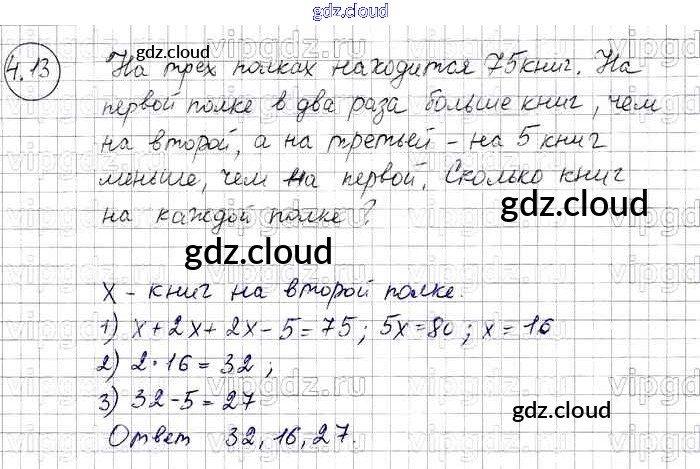 gdz.cloud
4.13
gdz.cloud
gdz.cloud
На трёх полках находится 75 книг. На
первой полке в два раза больше книг, чем
на второй, а на третьей - на 5 книг
меньше, чем на первой. Сколько книг
на каждой полке?
gdz.cloud
gdz.cloud
x - книг на второй полке.
1) x+2x+2x-5=75; 5x=80; x=16
2) 2·16=32;
3) 32-5=27
gdz.cloud
Ответ 32, 16, 27.
gdz.cloud
vipgdz.ru